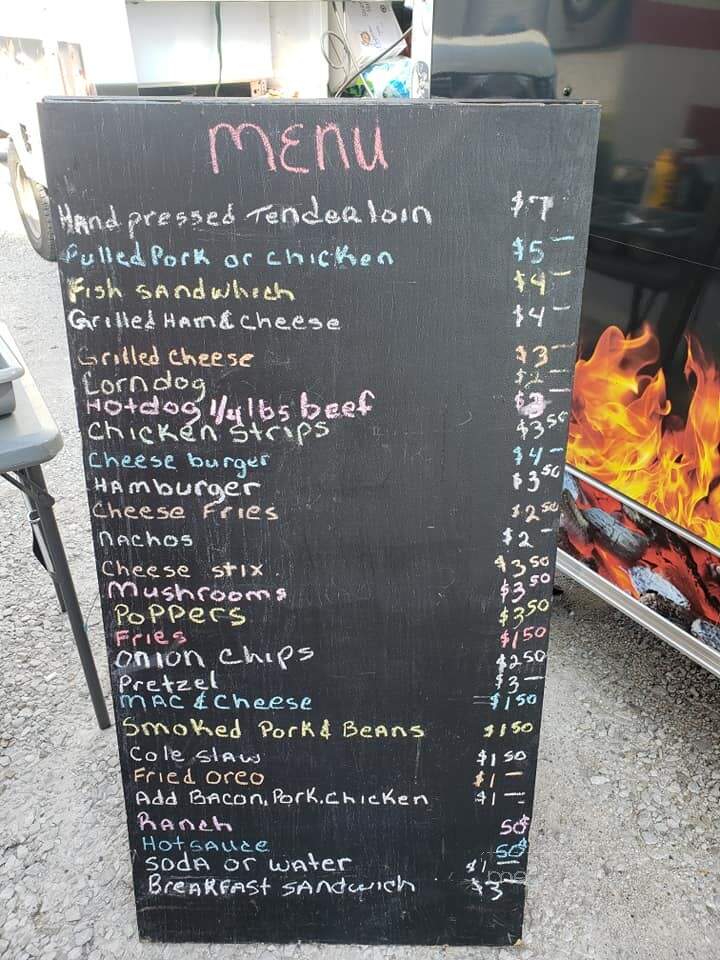 MENU
Hand pressed Tenderloin $7
Pulled Pork or chicken $5 —
Fish sandwhich $4 —
Grilled Ham & cheese $4 —
Grilled cheese $3 —
Corndog $2 —
Hotdog 1/4 lbs beef $3
Chicken strips $3 50
Cheese burger $4 —
Hamburger $3 50
Cheese Fries $2 50
nachos $2 —
Cheese stix $3 50
Mushrooms $3 50
Poppers $3 50
Fries $1 50
onion chips $2 50
Pretzel $3 —
MAC & Cheese $1 50
Smoked Pork & Beans $1 50
Cole slaw $1 50
Fried oreo $1 —
Add Bacon, Pork, chicken $1 —
Ranch 50¢
Hotsauce 50¢
soda or water $1 —
Breakfast sandwich $3 —